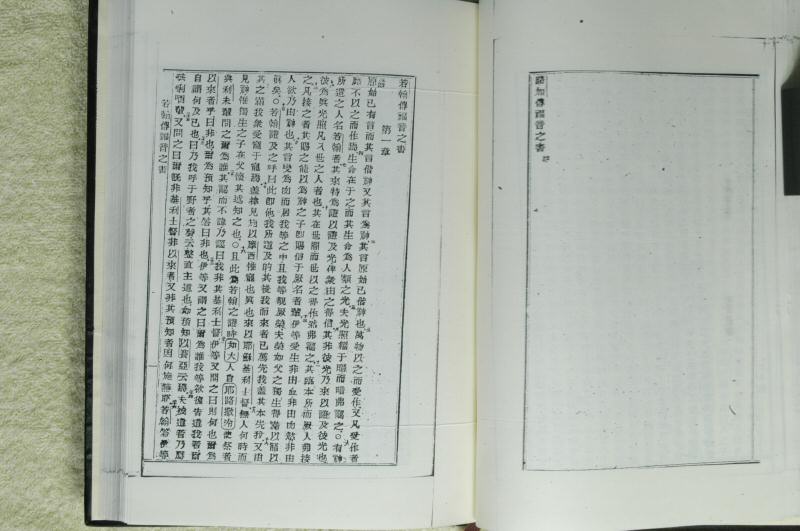 路加傳福音之書 終
若翰傳福音之書
第一章
原始已有言而其言偕神又其言為神其言原始已偕神也萬物以之而受作又凡受作者
無不以之而作焉生命在于之而其生命為人類之光夫光照耀于暗而暗弗識之○有神
所遣之人名若翰者其來特為證以證及光俾衆由之得信其非彼光乃來以證及彼光也
彼為真光照凡入世之人者也其在世間而世以之得作然弗識之其臨本所而厥人弗接
之凡接之者其賜之能以為神之子即賜信于厥名者輩伊等受生非由血非由肉慾非由
人欲乃由神也其言變為肉而居我等之中且我等覩厥榮夫榮如父之獨生得滿以寵以
誠矣○若翰證及之呼曰此即他我所道及的其後我而來者已為先我蓋其本先我又由
其之滿我衆受寵于寵焉蓋律見施以摩西惟寵也真也來以耶穌基利士督無人何時而
見神惟獨生之子在父懷其述知之也○且此為若翰之證時如大人自耶路撒冷使祭者
與利未輩問之曰爾為誰其認而不諱乃認曰我非其基利士督伊等又問之曰則何也爾為
以來者乎曰非也爾為預知乎其答曰非也伊等又謂之曰爾為誰我等欲復告遣我者爾
自謂何及己也曰乃我呼于野者之聲云整直主道也如預知以賽亞云緣夫被遣者乃厥
利西輩又問之曰爾既非基利士督非以來者又非其預知者因何施蘸耶若翰答伊等
若翰傳福音之書